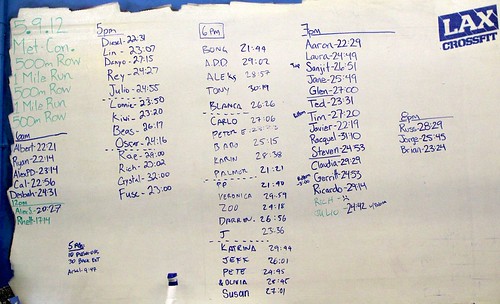 5.9.12
Met-Con.
500m Row
1 Mile Run
500m Row
1 Mile Run
500m Row
6am
Albert-22:21
Ryan-22:14
Alex-23:14
Cal-22:56
-24:31
12pm
Alex-20:27
Rhett-17:14
5pm
Diesel-22:31
Lin-23:07
Danyo-27:15
Rey-24:27
Julio-24:55
Lomie-23:50
Kiwi-23:20
Beas-26:17
Oscar-24:16
Rae-28:00
Rich-20:02
Crystal-32:00
Fusc-23:00
5 RDS
30 BACK EXT
6pm
BONG 21:44
A.D.D. 29:02
ALEKS 28:57
TONY 30:19
BLANCA 26:26
CARLO 27:06
PETER E
BABO 25:15
KARIN 28:38
PALMOR 21:21
PP 21:40
VERONICA 29:59
ZOO 24:18
DARREN 26:56
J 23:36
KATRINA 29:44
JEFF 26:01
PETE 24:45
&OLIVIA 28:45
Susan 27:01
7pm
Aaron-22:29
Laura-24:49
Sanjit-26:51
Jane-25:49
Glen-27:00
Ted-23:31
Tim-27:20
Javier-22:19
Racquel-31:10
Steven-24:53
Claudia-29:29
Gerrit-24:53
Ricardo-29:14
RICH-
JULIO-24:42
8pm
Russ-28:29
Jorge-25:45
Brian-23:24
LAX
CROSSFIT